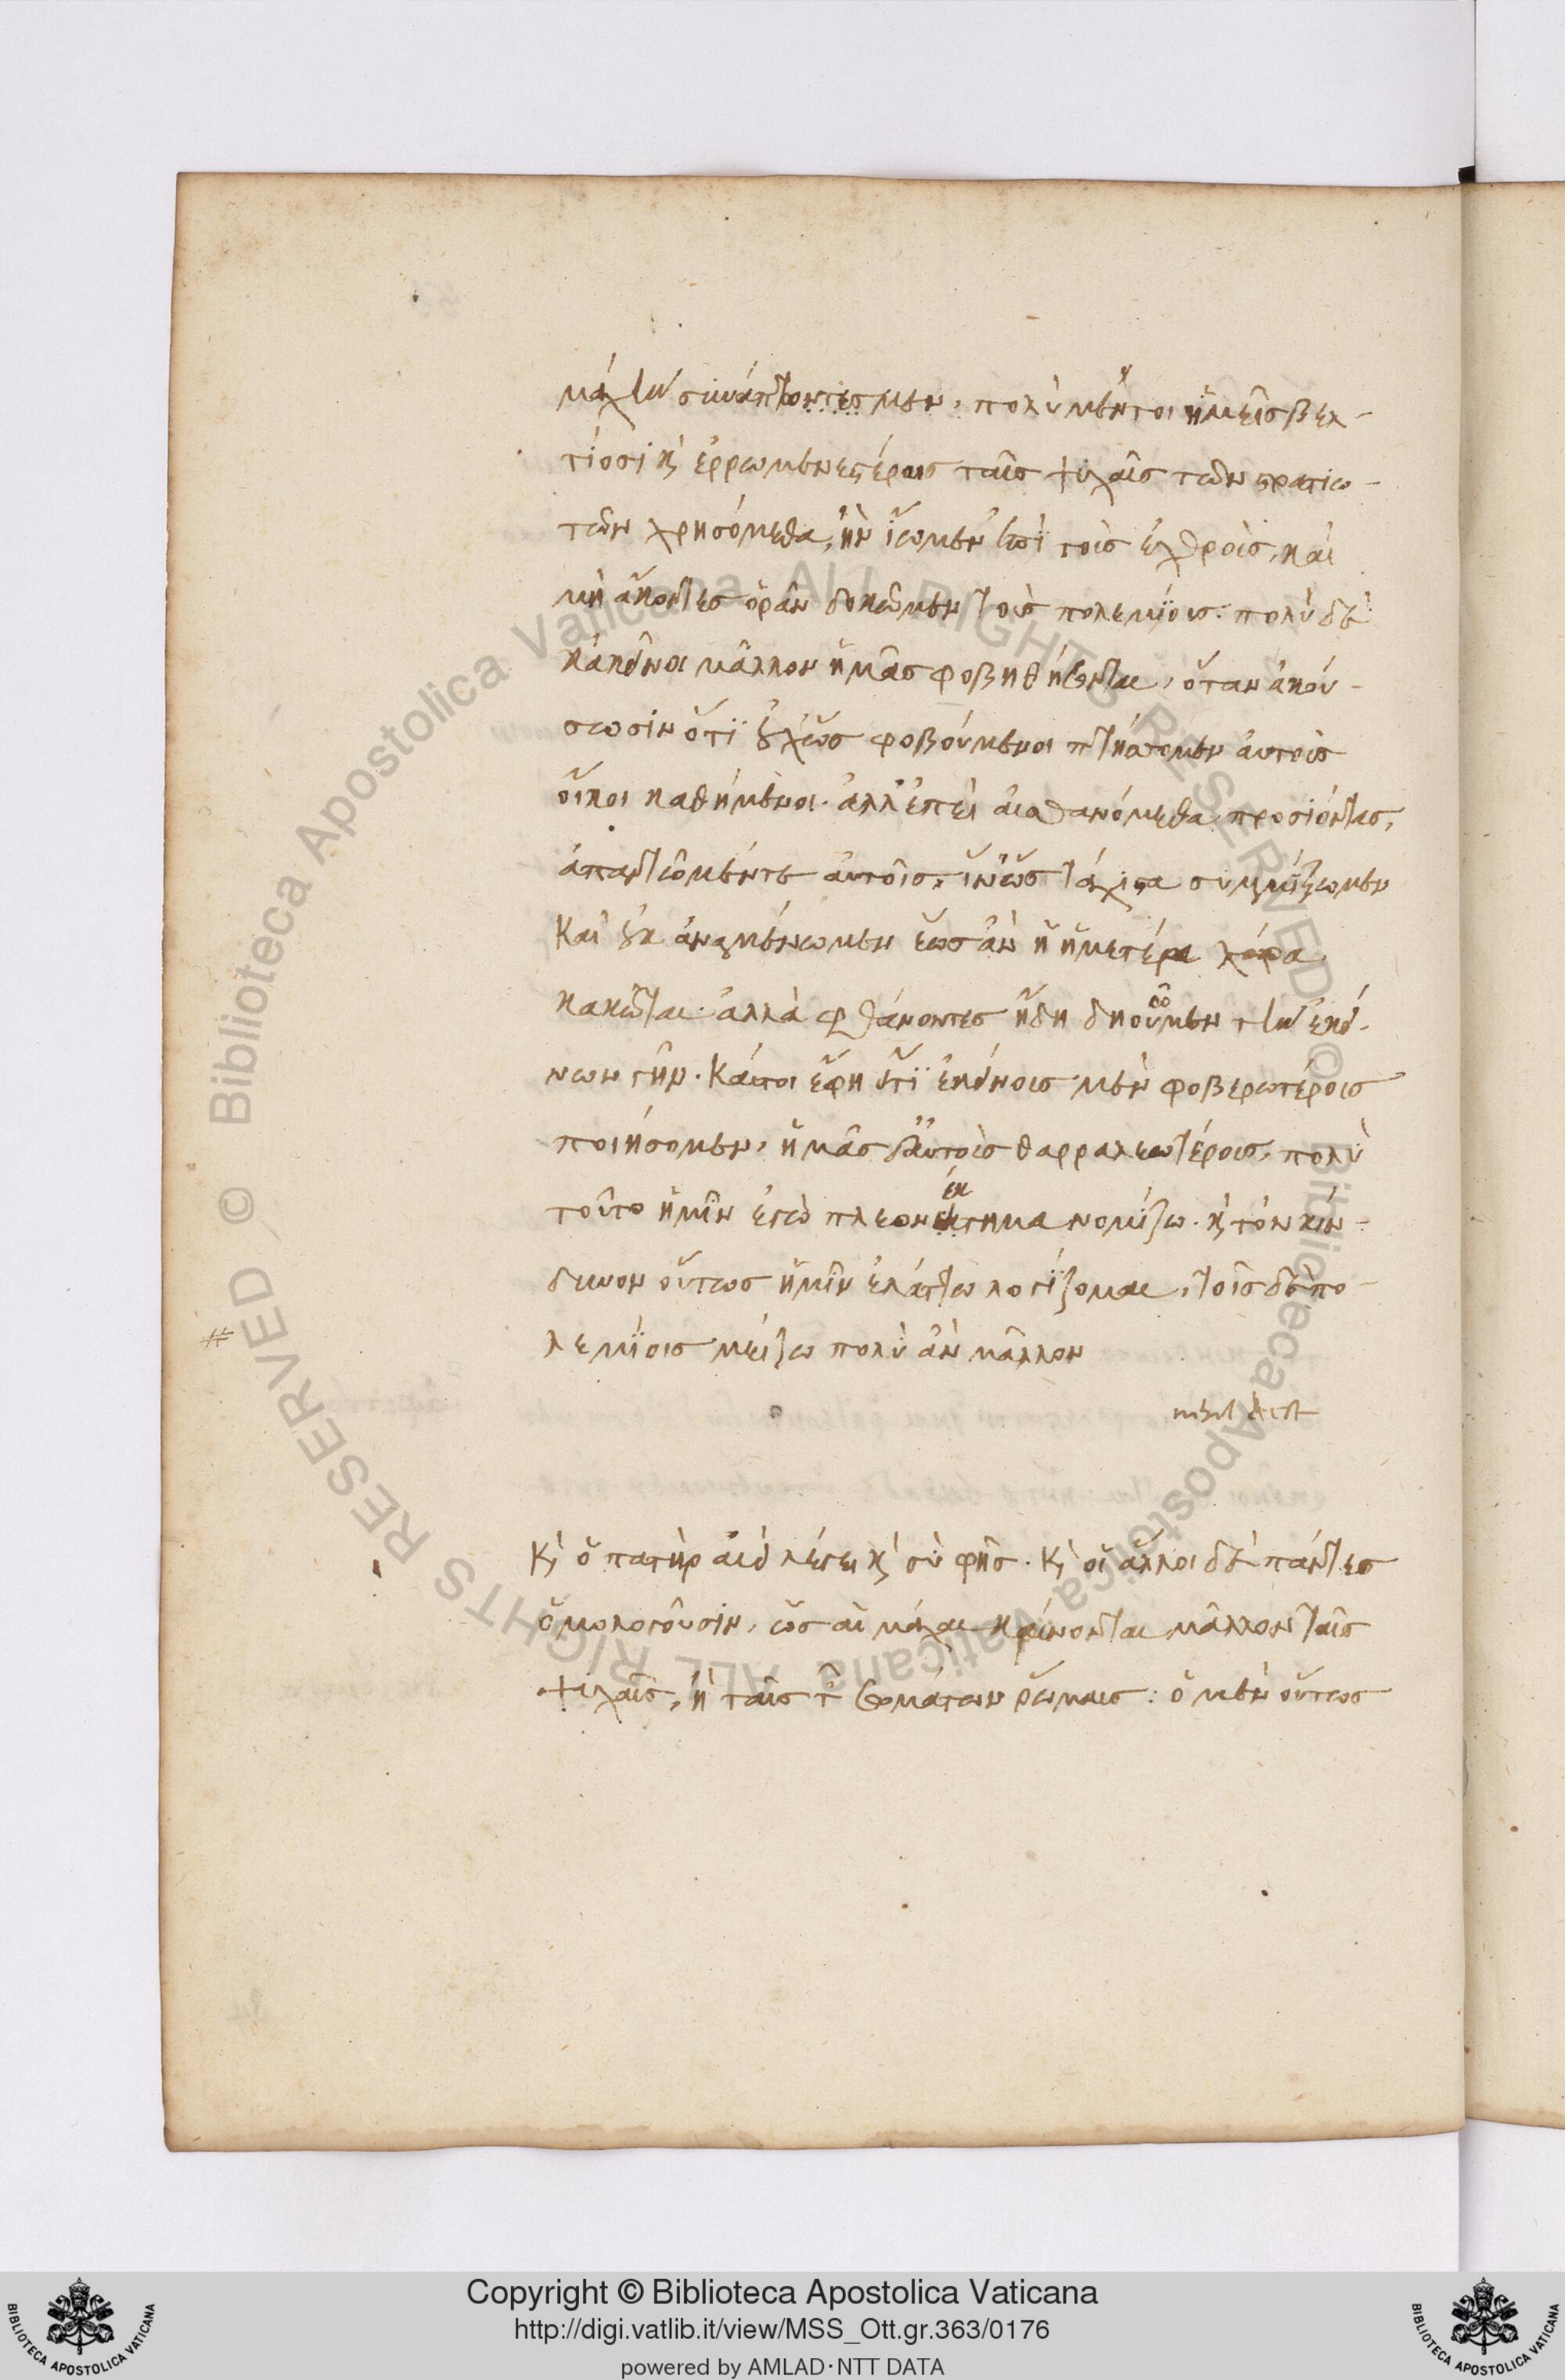 μάχην συνάπτοντες μεν, πολὺ μέντοι ἡμεῖς βελ-
τίοσι καὶ ἐρρωμενεστέραις ταῖς ψυχαῖς τῶν στρατιω-
τῶν χρησόμεθα, ἢν ἴωμεν ἐπὶ τοὺς ἐχθροὺς, καὶ
μὴ ἄκοντες ὁρᾶν δοκῶμεν τοὺς πολεμίους. πολὺ δὲ
κἀκεῖνοι μᾶλλον ἡμᾶς φοβηθήσονται, ὅταν ἀκού-
σωσιν ὅτι οὐχ ὡς φοβούμενοι πτήσσομεν αὐτοὺς
οἴκοι καθήμενοι. ἀλλ' ἐπεὶ αἰσθανόμεθα προσιόντας,
ἀπαντῶμέν τε αὐτοῖς, ἵν' ὡς τάχιστα συμμίξωμεν
Καὶ οὐκ ἀναμένωμεν ἕως ἂν ἡ ἡμετέρα χώρα
κακῶται. ἀλλὰ φθάνοντες ἤδη δῃοῦμεν τὴν ἐκεί-
νων γῆν. Καίτοι ἔφη ὅτι ἐκείνους μὲν φοβερωτέρους
ποιήσομεν, ἡμᾶς δ' αὐτοὺς θαρραλεωτέρους, πολὺ
τοῦτο ἡμῖν ἐγὼ πλεονέκτημα νομίζω. καὶ τὸν κίν-
δυνον οὕτως ἡμῖν ἐλάττω λογίζομαι, τοῖς δὲ πο-
λεμίοις μείζω πολὺ ἂν μᾶλλον
nihil deest
Καὶ ὁ πατὴρ αἰεὶ λέγει καὶ σὺ φῄς. Καὶ οἱ ἄλλοι δὲ πάντες
ὁμολογοῦσιν, ὡς αἱ μάχαι κρίνονται μᾶλλον ταῖς
ψυχαῖς, ἢ ταῖς τῶν σωμάτων ῥώμαις: ὁ μὲν οὕτως
Copyright © Biblioteca Apostolica Vaticana
http://digi.vatlib.it/view/MSS_Ott.gr.363/0176
powered by AMLAD·NTT DATA